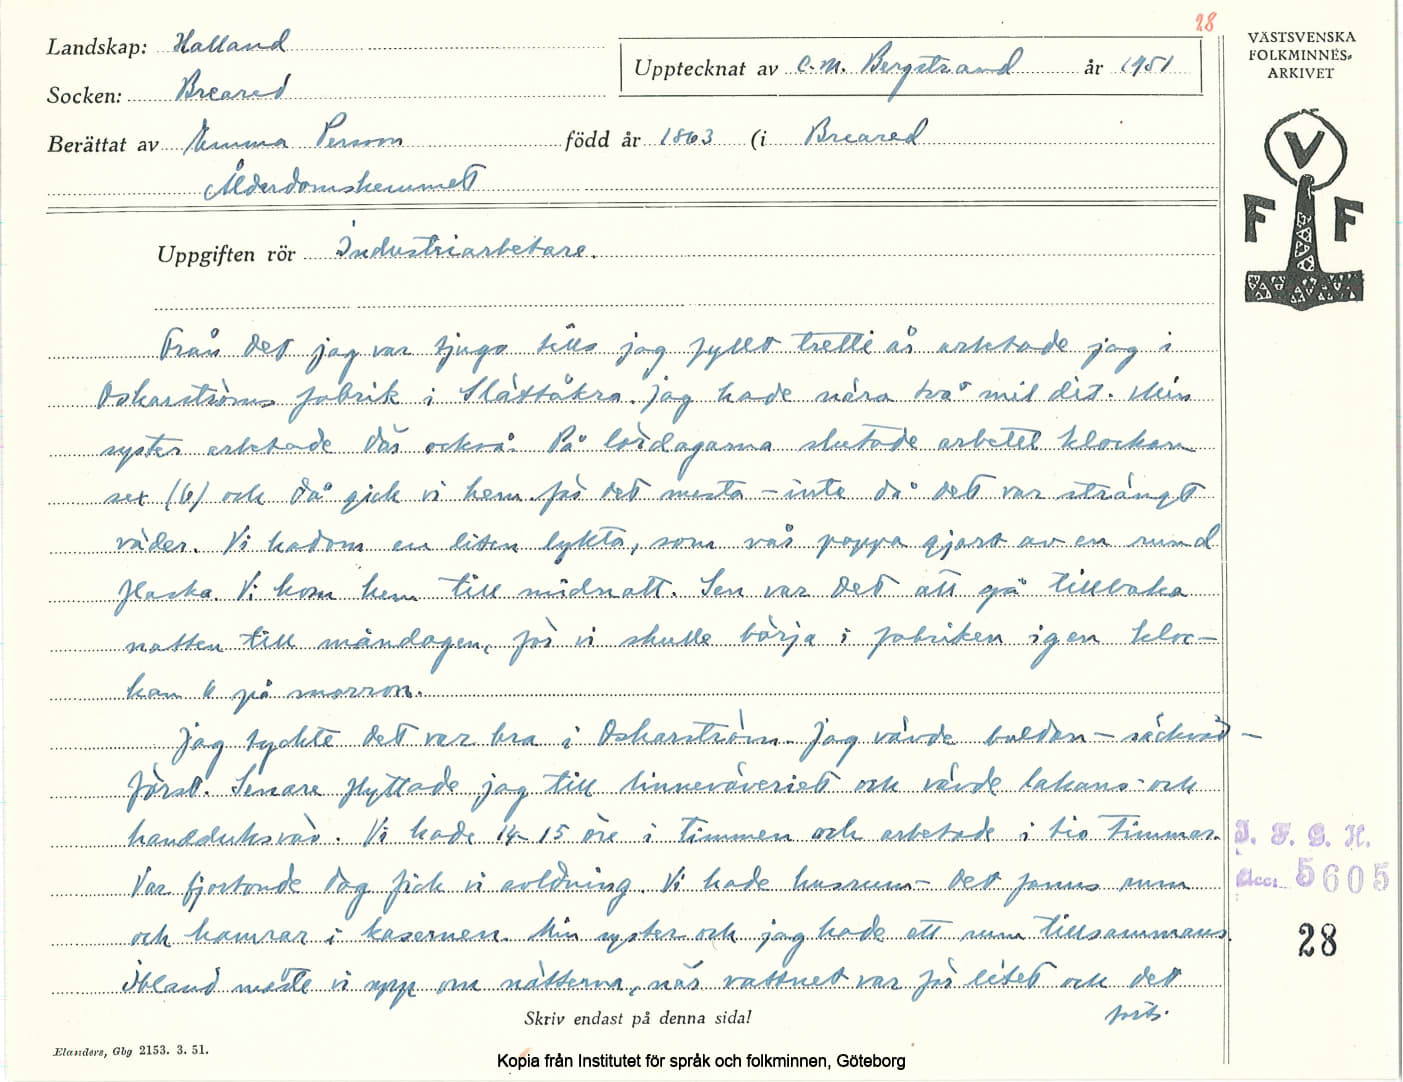 28
Landskap: Halland
Upptecknat av C. M. Bergstrand år 1951
Socken: Breared
Berättat av Emma Persson född år 1863 (i Breared
Ålderdomshemmet
VÄSTSVENSKA
FOLKMINNES-
ARKIVET
V
F F
Uppgiften rör Industriarbetare.
Från det jag var tjugo tills jag fyllt tretti år arbetade jag i
Oskarströms fabrik i Slättåkra. Jag hade nära två mil dit. Min
syster arbetade där också. På lördagarna slutade arbetet klockan
sex (6) och då gick vi hem för det mesta – inte då det var strängt
väder. Vi hadom en liten lykta, som vår pappa gjort av en rund
flaska. Vi kom hem till midnatt. Sen var det att gå tillbaka
natten till måndagen, för vi skulle börja i fabriken igen kloc-
kan 6 på morron.
Jag tyckte det var bra i Oskarström. Jag vävde buldan – säckväv –
först. Senare flyttade jag till linneväveriet och vävde lakans- och
handduksväv. Vi hade 14–15 öre i timmen och arbetade i tio timmar.
Var fjortonde dag fick vi avlöning. Vi hade husrum – det fanns rum
och kamrar i kasernen. Min syster och jag hade ett rum tillsammans.
Ibland måste vi upp om nätterna, när vattnet var för litet och det
forts.
I. F. G. H.
Acc. 5605
28
Skriv endast på denna sida!
Elanders, Gbg 2153. 3. 51.
Kopia från Institutet för språk och folkminnen, Göteborg